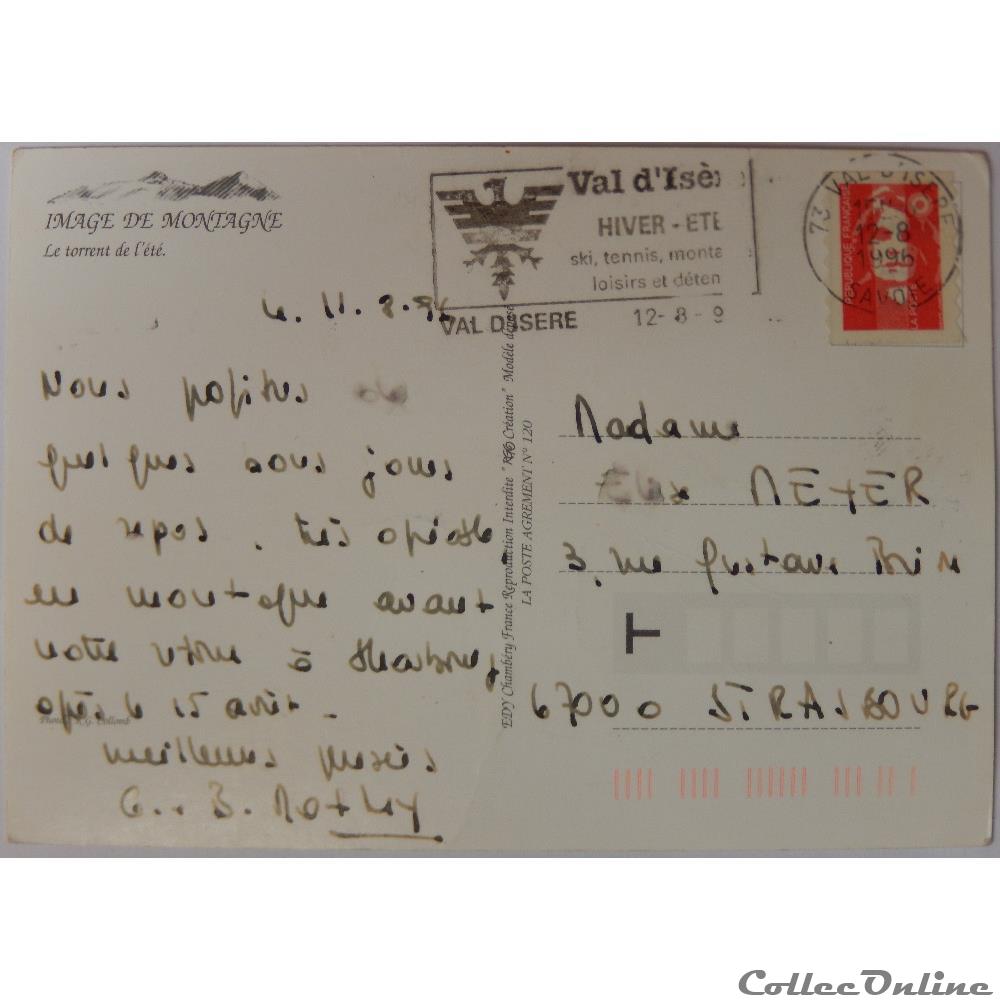 IMAGE DE MONTAGNE
Le torrent de l'été.
Val d'Isè
HIVER - ETE
ski, tennis, monta
loisirs et déten
VAL D'ISERE 12-8-9
73 VAL D'ISERE
12-8
1996
SAVOIE
REPUBLIQUE FRANÇAISE
LA POSTE
11.8.96
Nous profitons de
quelques jours
de repos. très agréable
en montagne avant
notre retour à Strasbourg
après le 15 août.
meilleures pensées
G. B.
Photo R.G. Collomb
EDY Chambéry France Reproduction Interdite "Création" Modèle déposé
LA POSTE AGREMENT N° 120
Madame
MEYER
3, rue Gustave
T
67000 STRASBOURG
CollecOnline